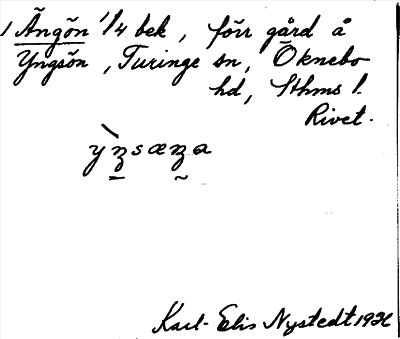 1 Ängön 1/4 bek, förr gård å
Yngsön, Turinge sn, Öknebo
hd, Sthms l.
Rivet.
Karl-Elis Nystedt 1926